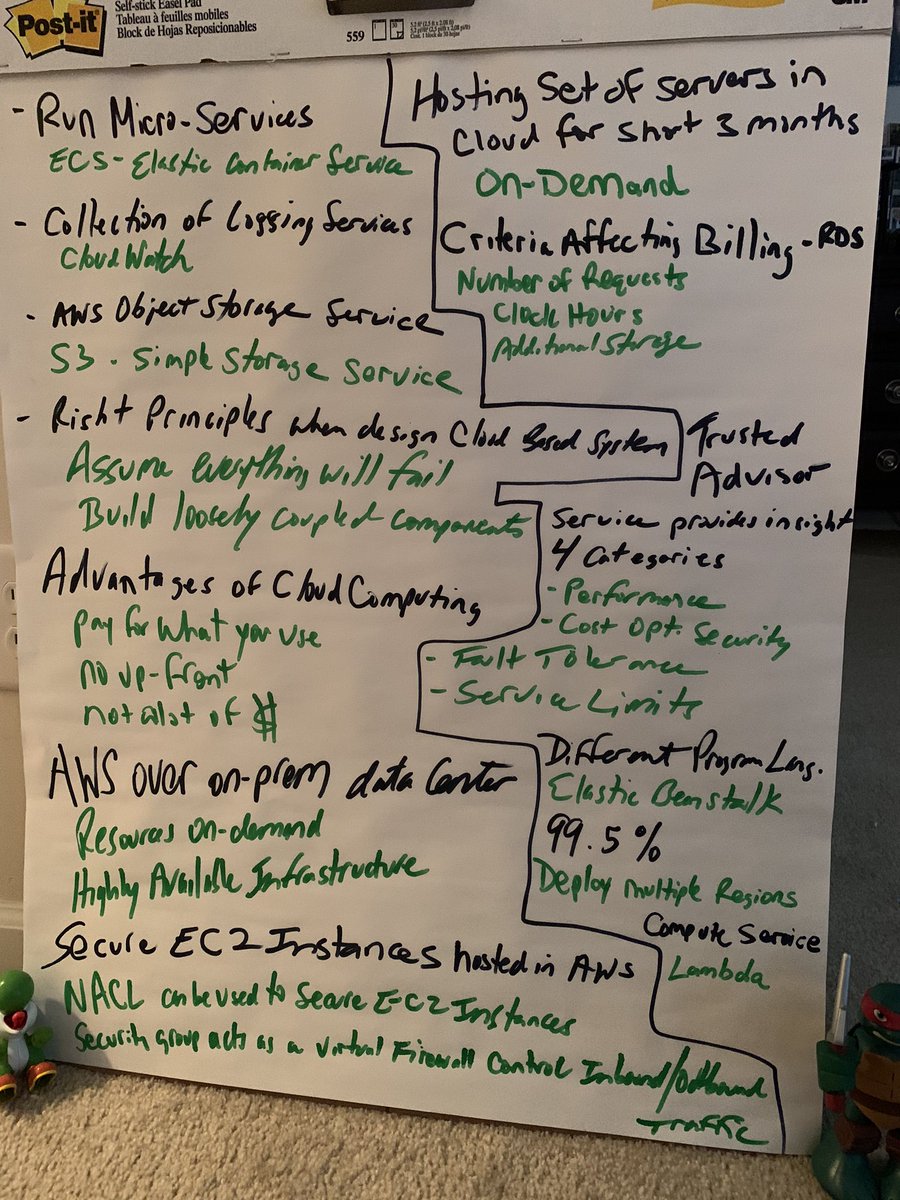 Post-it
Self-stick Easel Pad
Tableau à feuilles mobiles
Block de Hojas Reposicionables
559
- Run Micro-Services
ECS - Elastic Container Service
- Collection of Logging Services
CloudWatch
- AWS Object Storage Service
S3 - Simple Storage Service
- Right Principles when design Cloud Based System
Assume everything will fail
Build loosely coupled components
Advantages of Cloud Computing
Pay for what you use
no up-front
not alot of $
AWS over on-prem data Center
Resources on-demand
Highly Available Infrastructure
Secure EC2 Instances hosted in AWS
NACL can be used to secure EC2 Instances
Security group acts as a virtual Firewall Control Inbound/Outbound
traffic
Hosting Set of servers in
Cloud for short 3 months
On-Demand
Criteria Affecting Billing - RDS
Number of Requests
Clock Hours
Additional Storage
Trusted
Advisor
Service provides insight
4 Categories
- Performance
- Cost Opt. Security
- Fault Tolerance
- Service Limits
Different Program Lang.
Elastic Beanstalk
99.5%
Deploy multiple Regions
Compute Service
Lambda